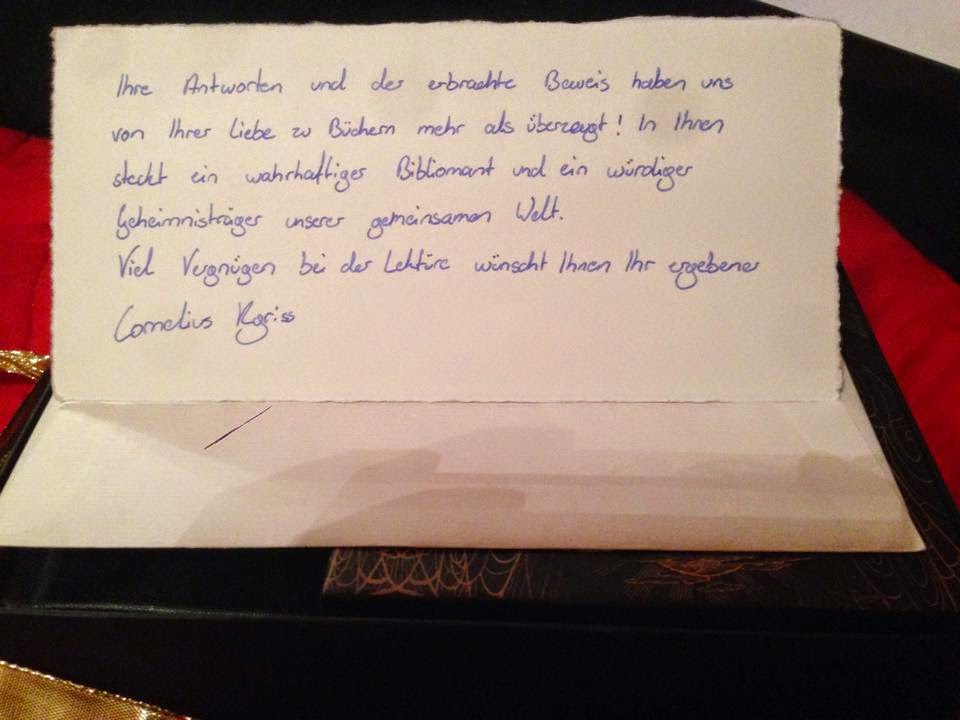 Ihre Antworten und der erbrachte Beweis haben uns
von Ihrer Liebe zu Büchern mehr als überzeugt! In Ihnen
steckt ein wahrhaftiger Bibliomant und ein würdiger
Geheimnisträger unserer gemeinsamen Welt.
Viel Vergnügen bei der Lektüre wünscht Ihnen Ihr ergebener
Cornelius